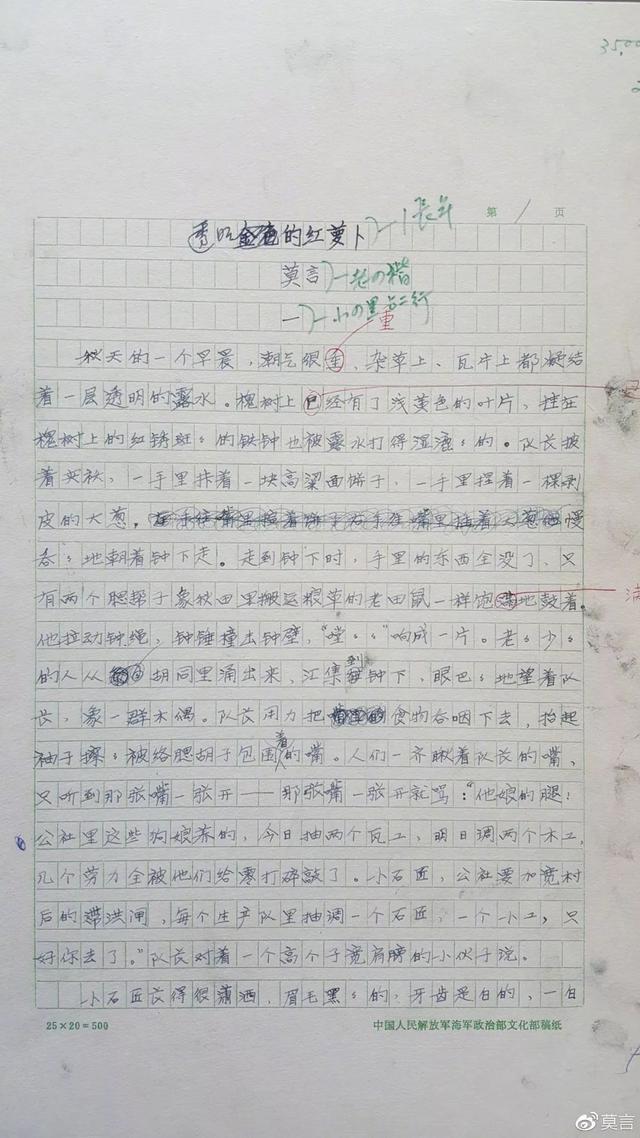 35,00
第 1 页
透明的红萝卜
莫言
一
重
秋天的一个早晨,潮气很重,杂草上、瓦片上都凝结
着一层透明的露水。槐树上已经有了浅黄色的叶片,挂在
槐树上的红锈斑〻的铁钟也被露水打得湿漉〻的。队长披
着夹袄,一手里拤着一块高梁面饼子,一手里捏着一棵剥
皮的大葱,慢
吞〻地朝着钟下走。走到钟下时,手里的东西全没了,只
有两个腮帮子象秋田里搬运粮草的老田鼠一样饱满地鼓着。
他拉动钟绳,钟锤撞击钟壁,“嘡〻〻”响成一片。老〻少〻
的人从胡同里涌出来,汇集到钟下,眼巴〻地望着队
长,象一群木偶。队长用力把食物吞咽下去,抬起
袖子擦〻被络腮胡子包围着的嘴。人们一齐瞅着队长的嘴,
只听到那张嘴一张开——那张嘴一张开就骂:“他娘的腿!
公社里这些狗娘养的,今日抽两个瓦工,明日调两个木工,
几个劳力全被他们给零打碎敲了。小石匠,公社要加宽村
后的滞洪闸,每个生产队里抽调一个石匠,一个小工,只
好你去了。”队长对着一个高个子宽肩膀的小伙子说。
小石匠长得很潇洒,眉毛黑〻的,牙齿是白的,一白
25×20=500
中国人民解放军海军政治部文化部稿纸
莫言